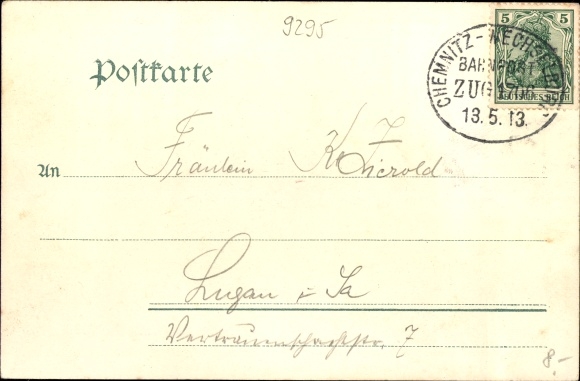 9295
5 5
DEUTSCHES REICH
CHEMNITZ - WECHSELBURG
BAHNPOST
ZUG 1706
13.5.13.
Postkarte
An Fräulein K. Zierold
Lugau i. Sa
Vertrauenschachtstr. 7
8.-